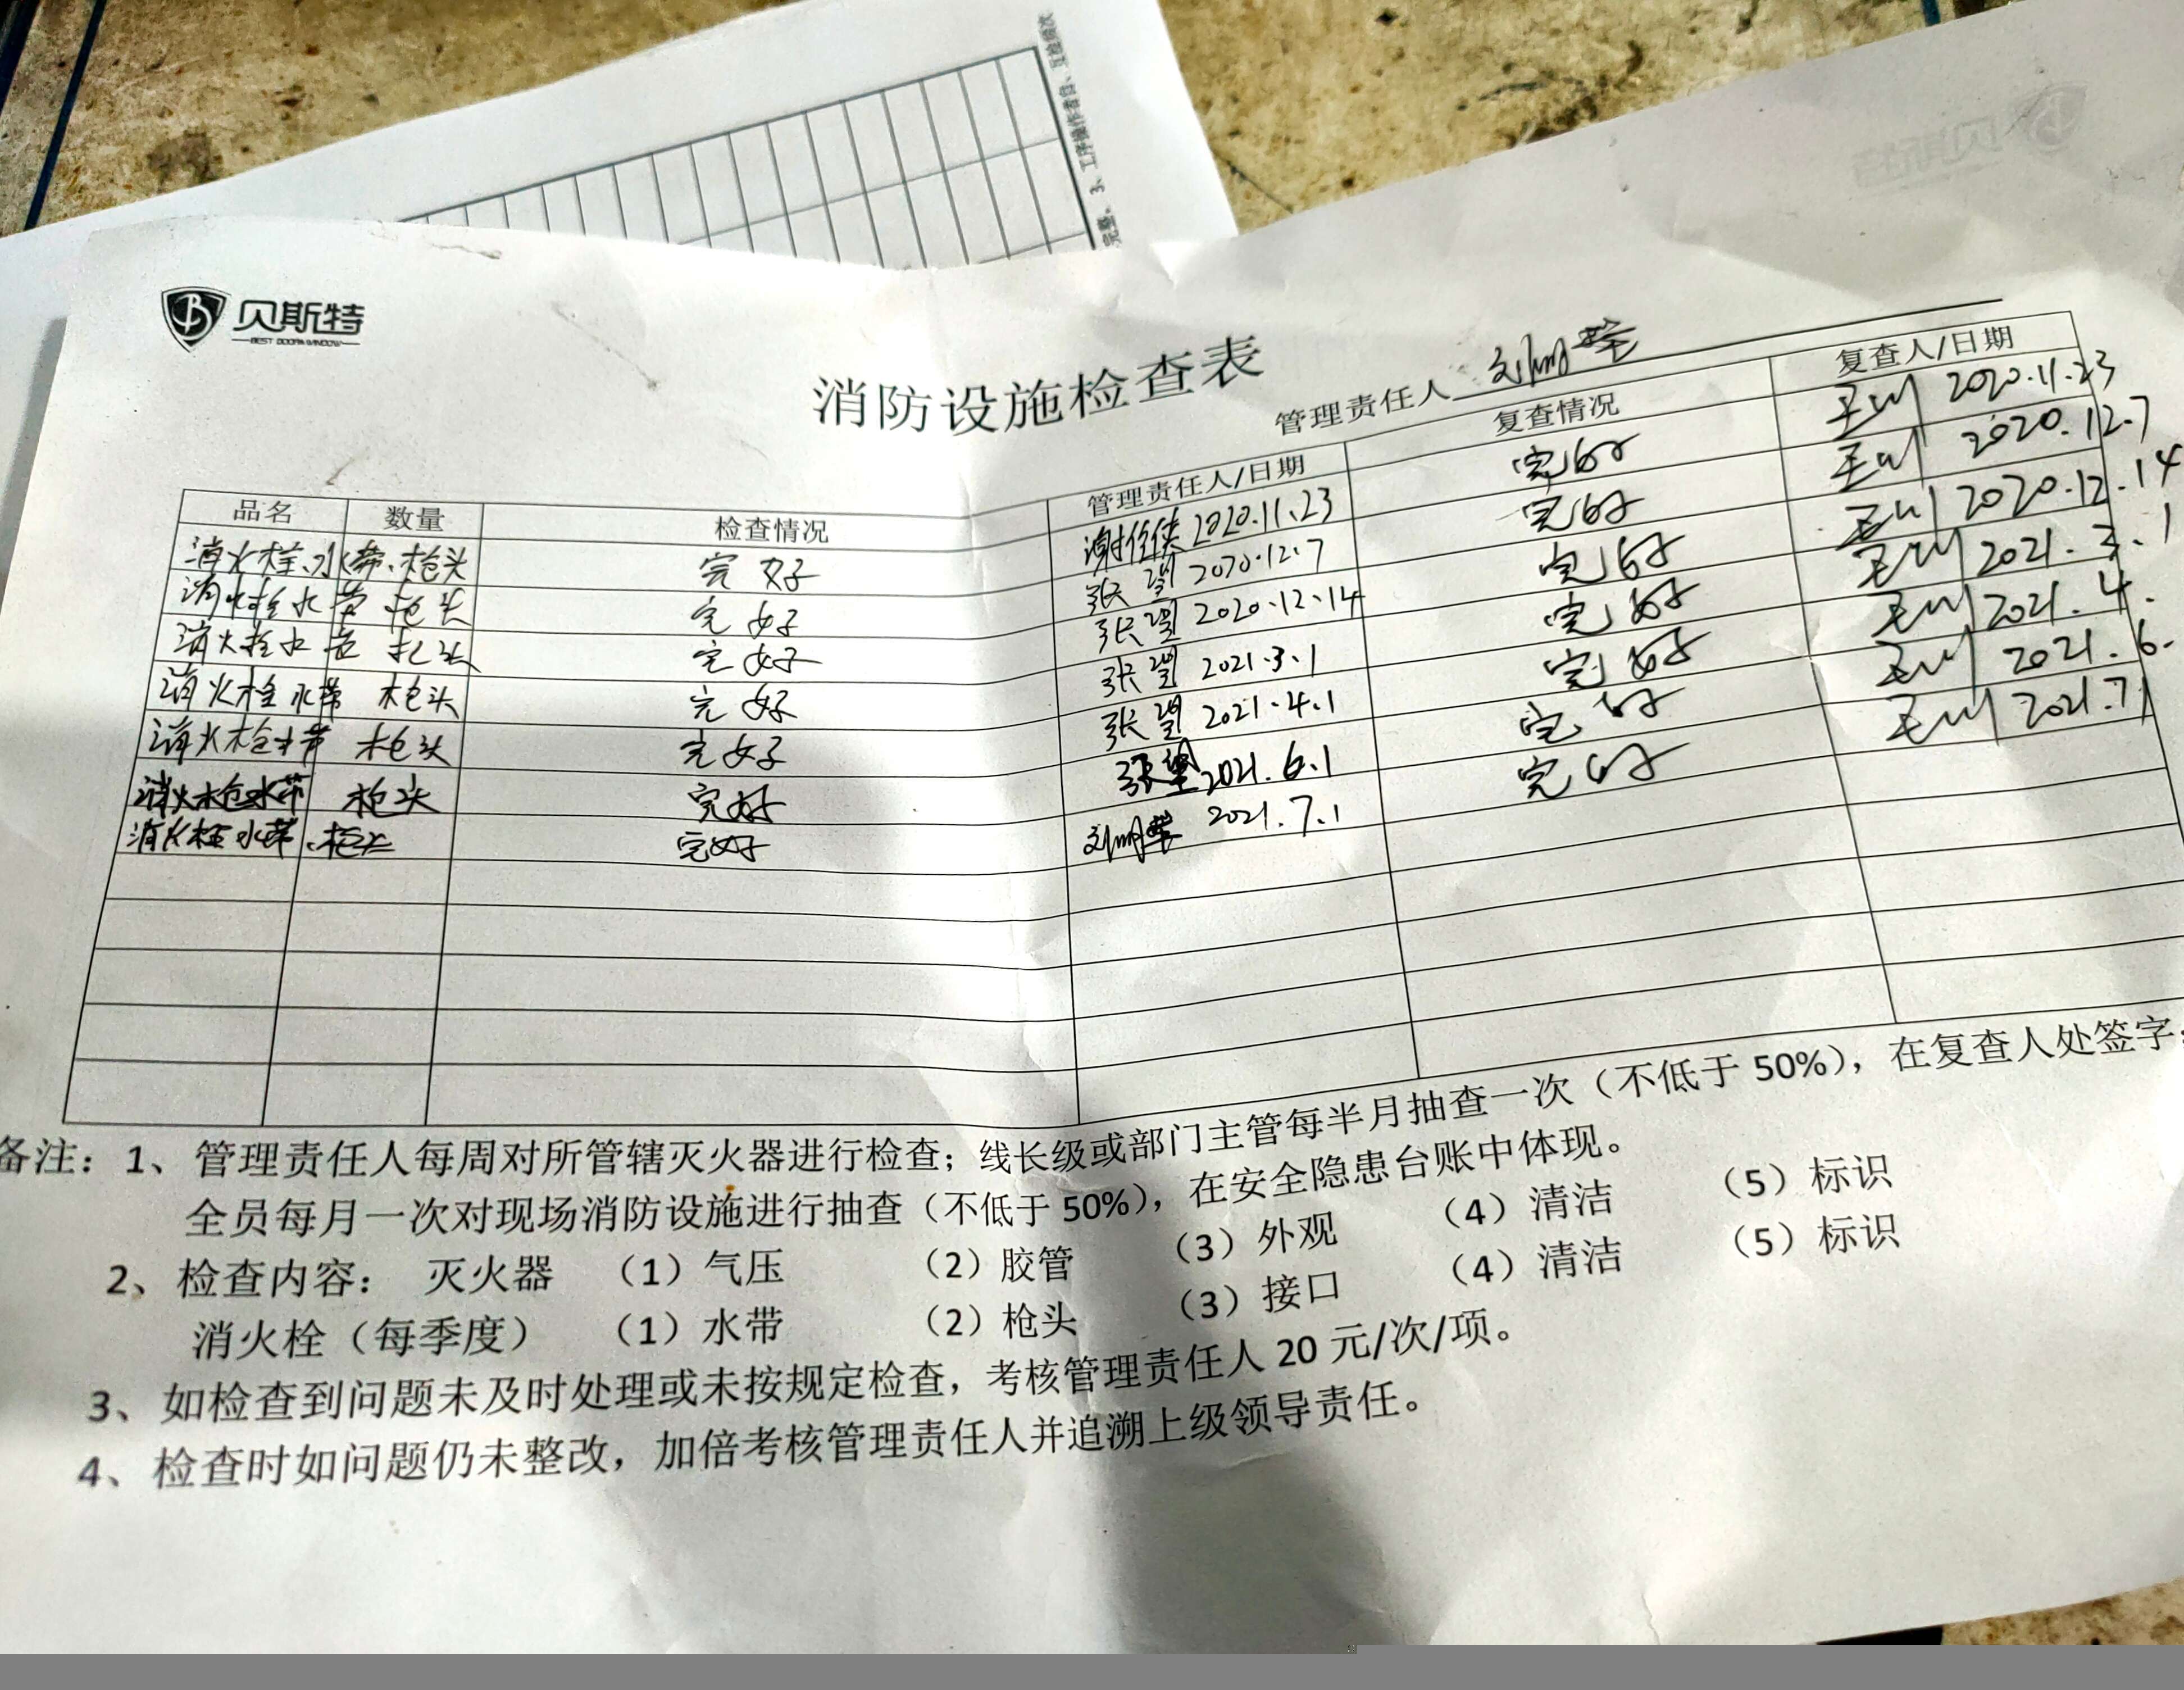 完整。 3、工序操作者自、互检频次
贝斯特
贝斯特
BEST DOOR&WINDOW
消防设施检查表
管理责任人
品名 数量 检查情况 管理责任人/日期 复查情况 复查人/日期
消火栓、水带、枪头 完好 2020.11.23 完好 王川 2020.11.23
消火栓水带 枪头 完好 张望 2020.12.7 完好 王川 2020.12.7
消火栓水带 枪头 完好 张望 2020.12.14 完好 王川 2020.12.14
消火栓水带 枪头 完好 张望 2021.3.1 完好 王川 2021.3.1
消火栓水带 枪头 完好 张望 2021.4.1 完好 王川 2021.4.
消火栓水带 枪头 完好 张望 2021.6.1 完好 王川 2021.6.
消火栓水带、枪头 完好 2021.7.1 完好 王川 2021.7.1
备注：1、管理责任人每周对所管辖灭火器进行检查；线长级或部门主管每半月抽查一次（不低于 50%），在复查人处签字；
全员每月一次对现场消防设施进行抽查（不低于 50%），在安全隐患台账中体现。
2、检查内容： 灭火器 （1）气压 （2）胶管 （3）外观 （4）清洁 （5）标识
消火栓（每季度） （1）水带 （2）枪头 （3）接口 （4）清洁 （5）标识
3、如检查到问题未及时处理或未按规定检查，考核管理责任人 20 元/次/项。
4、检查时如问题仍未整改，加倍考核管理责任人并追溯上级领导责任。